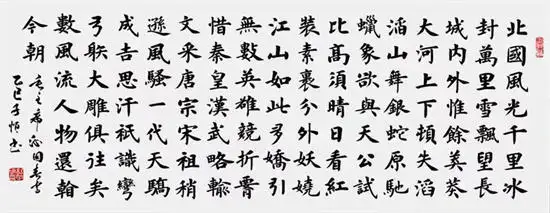 北國風光千里冰
封萬里雪飄望長
城內外惟餘莽莽
大河上下頓失滔
滔山舞銀蛇原馳
蠟象欲與天公試
比高須晴日看紅
裝素裹分外妖嬈
江山如此多嬌引
無數英雄競折腰
惜秦皇漢武略輸
文采唐宗宋祖稍
遜風騷一代天驕
成吉思汗祇識彎
弓射大雕俱往矣
數風流人物還看
今朝
毛主席詞沁园春雪
乙巳